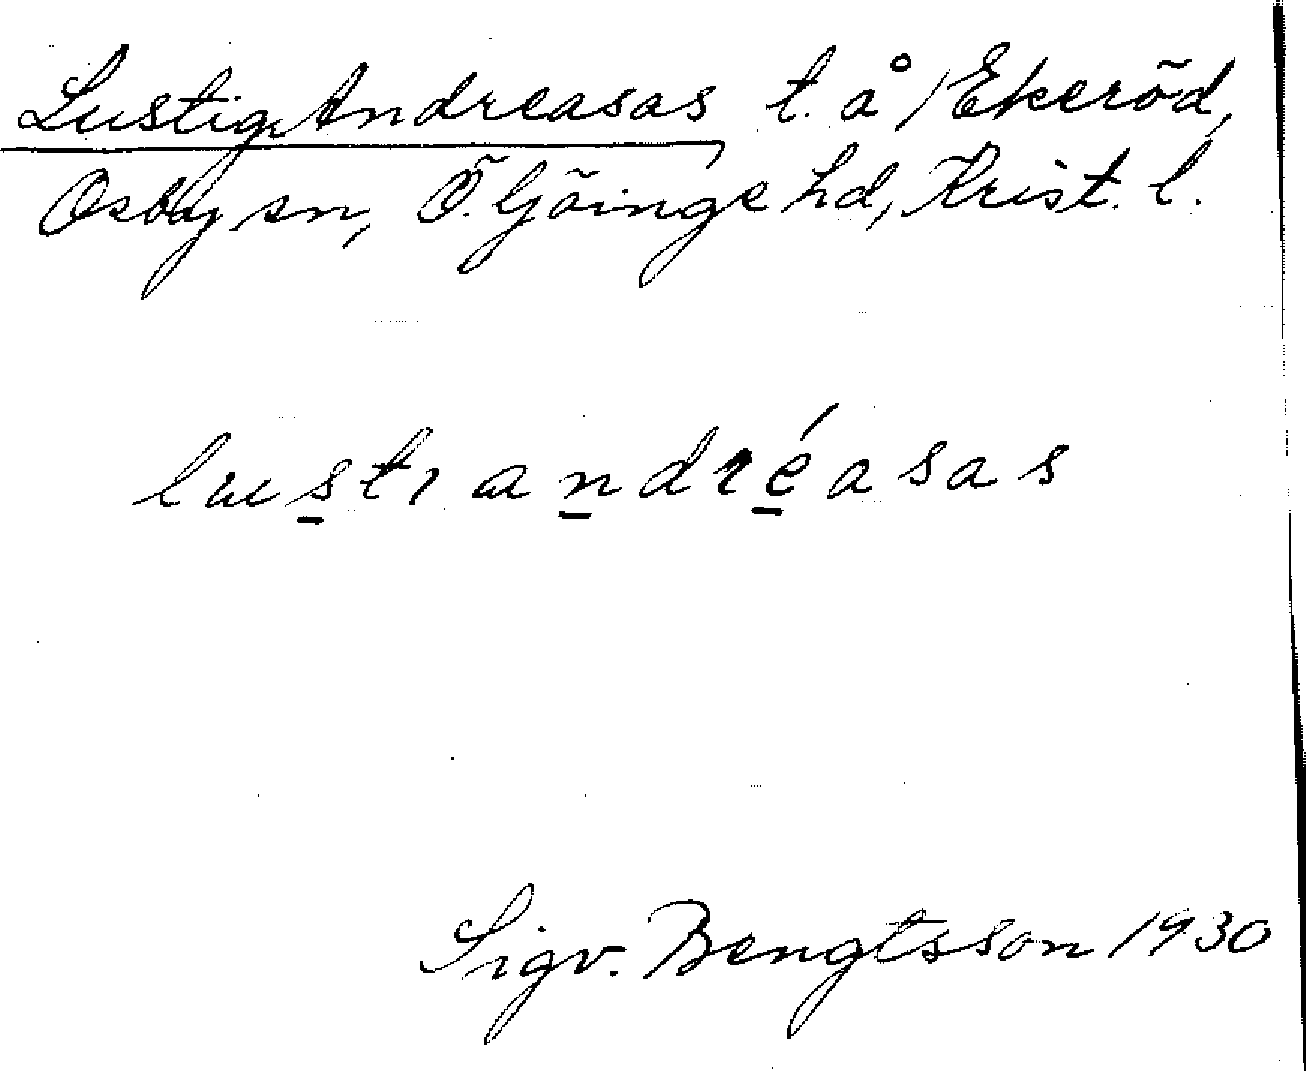 Lustig Andreasas t. å /Ekeröd,
Osby sn, Ö. Göinge hd, Krist. l.
lustı andréasas
Sigv. Bengtsson 1930